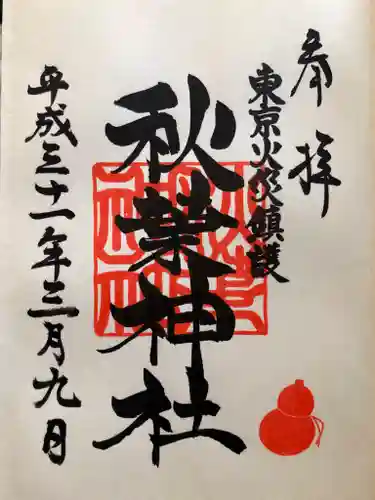 奉拝
東京火災鎮護
秋葉神社
平成三十一年三月九日